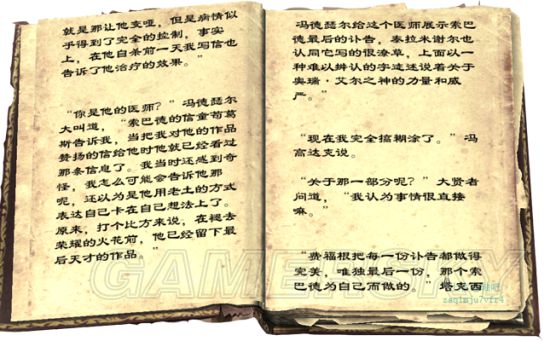 就是那让他变哑，但是病情似
乎得到了完全的控制，事实
上，在他自杀前一天我写信也
告诉了他治疗的效果。”
“你是他的医师？”冯德瑟尔
大叫道，“索巴德的信童苟葛
斯告诉我，当把我对他的作品
赞扬的信给他时他就已经看过
那条信息了。我当时还感到奇
怪，我怎么可能会告诉他那
呢，还以为是他用老土的方式
表达自己卡在自己想法上了。
原来，打个比方来说，在褪去
荣耀的火花前，他已经留下最
后天才的作品。”
冯德瑟尔给这个医师展示索巴
德最后的讣告，泰拉米谢尔也
认同它写的很潦草，上面以一
种难以辨认的字迹述说着关于
奥瑞·艾尔之神的力量和威
严。”
“现在我完全搞糊涂了。”冯
高达克说。
“关于那一部分呢？”大贤者
问道，“我认为事情很直接
嘛。”
“费福根把每一份讣告都做得
完美，唯独最后一份，那个索
巴德为自己而做的。”塔克西
GAMERSKY
zaq1mju7vfr4